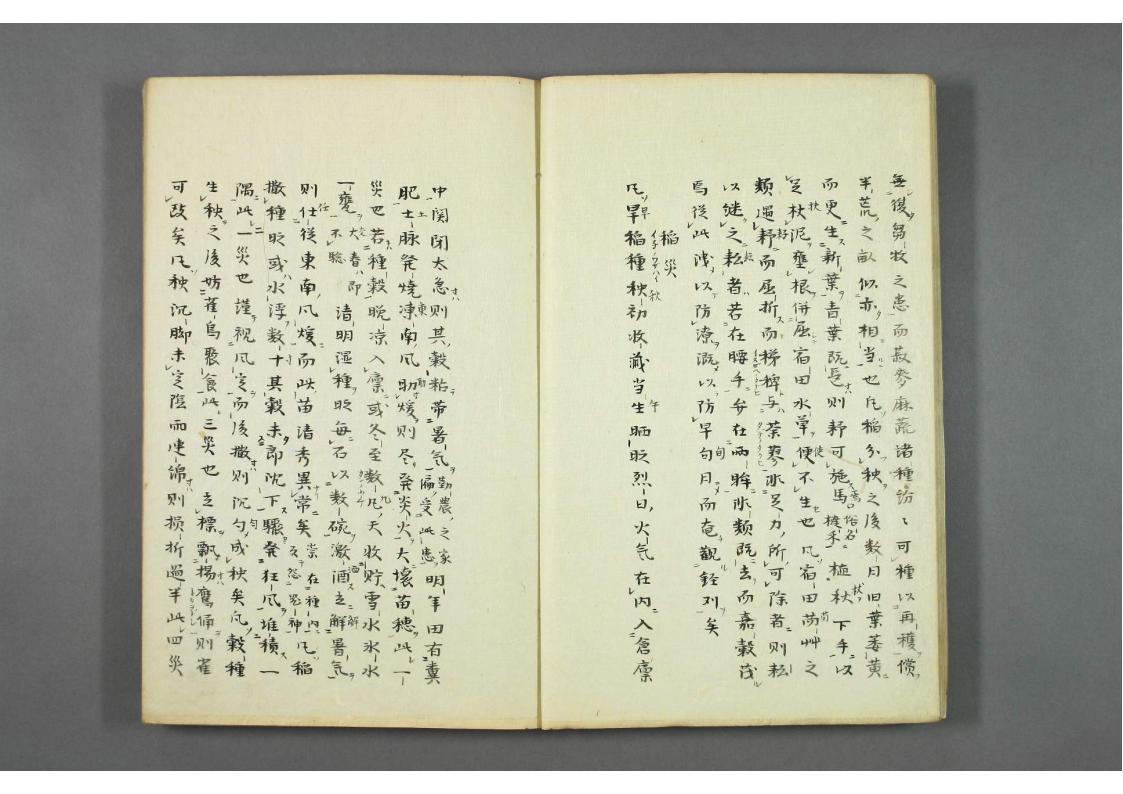 無復芻牧之患而菽麥麻蔬諸種紛〻可種以再穫償
半荒之畝似亦相当也凡稲分秧之後数日旧葉萎黄
而更生新葉青葉既長則耔可施焉俗名撻禾植杖下手以
足杖泥壅根併屈宿田水草使不生也凡宿田䒽艸之
類遇耔而屈折而稊稗与荼蓼非足力所可除者則耘
以継之耘者若在腰手弁在両眸非類既去而嘉穀茂
焉従此洩以防潦漑以防旱旬月而奄観銍刈矣
稲災
凡早稲種秋初收藏当午晒時烈日火气在内入倉廩
中関閉太急則其穀粘帯暑气勤農之家偏受此患明年田有糞
肥土脉発焼東南風助煖則尽発炎火大壊苗穂此一
災也若種穀晩凉入廩或冬至数九天收貯雪水氷水
一甕交春即不驗清明湿種時毎石以数碗激洒立解暑气
則任従東南風煖而此苗清秀異常矣祟在種内反怨鬼神凡稲
撒種時或水浮数寸其穀未即沈下驟発狂風堆積一
隅此二災也謹視風定而後撒則沉匀成秧矣凡穀種
生秧之後妨雀鳥聚食此三災也立標飄揚鷹俑則雀
可敺矣凡秧沉脚未定陰雨連綿則損折過半此四災